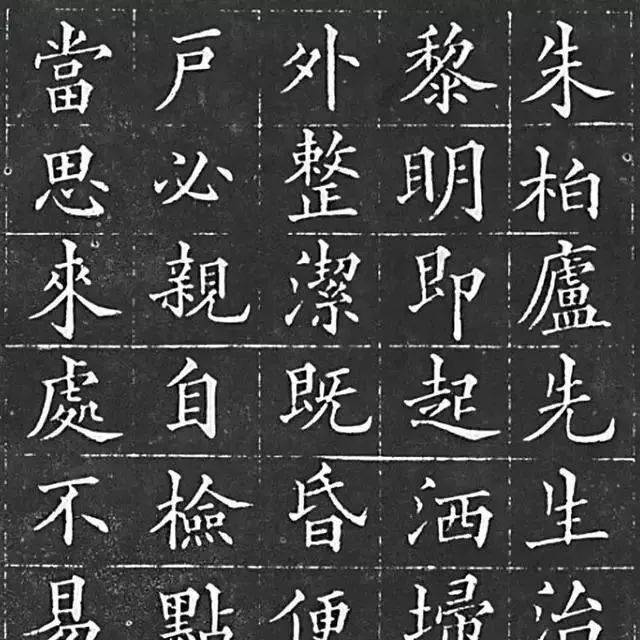 朱柏廬先生治
黎明即起洒埽
外整潔既昏便
戶必親自檢點
當思來處不易